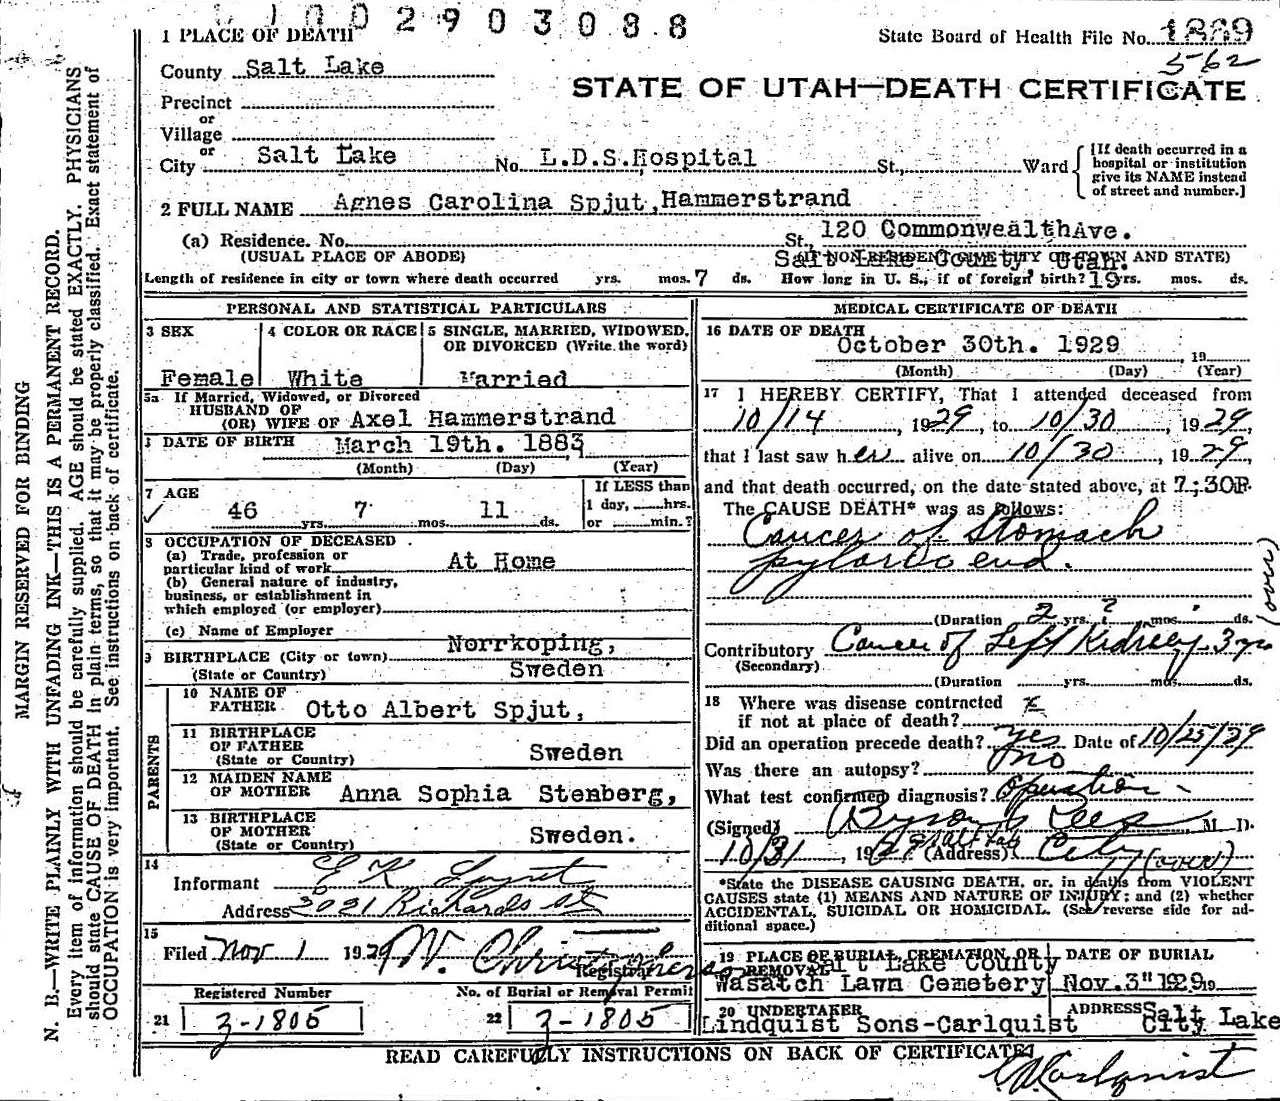 2903088
1 PLACE OF DEATH
State Board of Health File No. 1869
562
County Salt Lake
STATE OF UTAH—DEATH CERTIFICATE
Precinct
or
Village
or
City Salt Lake No. L.D.S. Hospital St., Ward
[If death occurred in a
hospital or institution
give its NAME instead
of street and number.]
2 FULL NAME Agnes Carolina Spjut, Hammerstrand
(a) Residence. No. St., 120 Commonwealth Ave.
(USUAL PLACE OF ABODE) Salt Lake County, Utah.
(IF NON-RESIDENT GIVE CITY OR TOWN AND STATE)
Length of residence in city or town where death occurred yrs. mos. 7 ds. How long in U. S., if of foreign birth? 19 yrs. mos. ds.
PERSONAL AND STATISTICAL PARTICULARS
3 SEX
Female
4 COLOR OR RACE
White
5 SINGLE, MARRIED, WIDOWED,
OR DIVORCED (Write the word)
Married
5a If Married, Widowed, or Divorced
HUSBAND OF
(OR) WIFE OF Axel Hammerstrand
DATE OF BIRTH March 19th. 1883
(Month) (Day) (Year)
7 AGE
46 yrs. 7 mos. 11 ds.
If LESS than
1 day, hrs.
or min.?
8 OCCUPATION OF DECEASED
(a) Trade, profession or
particular kind of work At Home
(b) General nature of industry,
business, or establishment in
which employed (or employer)
(c) Name of Employer
9 BIRTHPLACE (City or town) Norrkoping,
(State or Country) Sweden
PARENTS
10 NAME OF
FATHER Otto Albert Spjut,
11 BIRTHPLACE
OF FATHER
(State or Country) Sweden
12 MAIDEN NAME
OF MOTHER Anna Sophia Stenberg,
13 BIRTHPLACE
OF MOTHER
(State or Country) Sweden.
14
Informant E K
Address 3021 Richards St
15
Filed Nov 1 1929 W. Christopherson
Registrar
Registered Number
21 3-1805
No. of Burial or Removal Permit
22 3-1805
MEDICAL CERTIFICATE OF DEATH
16 DATE OF DEATH
October 30th. 1929, 19
(Month) (Day) (Year)
17 I HEREBY CERTIFY, That I attended deceased from
10/14, 1929, to 10/30, 1929,
that I last saw her alive on 10/30, 1929,
and that death occurred, on the date stated above, at 7;30P.
The CAUSE DEATH* was as follows:
Cancer of Stomach
pyloric end.
(over)
(Duration 2 yrs. ? mos. ds.
Contributory Cancer of Left Kidney - 3 yrs
(Secondary)
(Duration yrs. mos. ds.
18 Where was disease contracted
if not at place of death? x
Did an operation precede death? yes Date of 10/25/29
Was there an autopsy? no
What test confirmed diagnosis? Operation -
(Signed) Byron Rees, M. D.
10/31, 1929 (Address) Salt Lake City (over)
*State the DISEASE CAUSING DEATH, or, in deaths from VIOLENT
CAUSES state (1) MEANS AND NATURE OF INJURY; and (2) whether
ACCIDENTAL, SUICIDAL OR HOMICIDAL. (See reverse side for ad-
ditional space.)
19 PLACE OF BURIAL, CREMATION, OR
REMOVAL Salt Lake County
Wasatch Lawn Cemetery
DATE OF BURIAL
Nov. 3" 1929 19
20 UNDERTAKER
Lindquist Sons-Carlquist
ADDRESS Salt Lake
City
READ CAREFULLY INSTRUCTIONS ON BACK OF CERTIFICATE
Carlquist
MARGIN RESERVED FOR BINDING
N. B.—WRITE PLAINLY WITH UNFADING INK—THIS IS A PERMANENT RECORD.
Every item of information should be carefully supplied. AGE should be stated EXACTLY. PHYSICIANS
should state CAUSE OF DEATH in plain terms, so that it may be properly classified. Exact statement of
OCCUPATION is very important. See instructions on back of certificate.